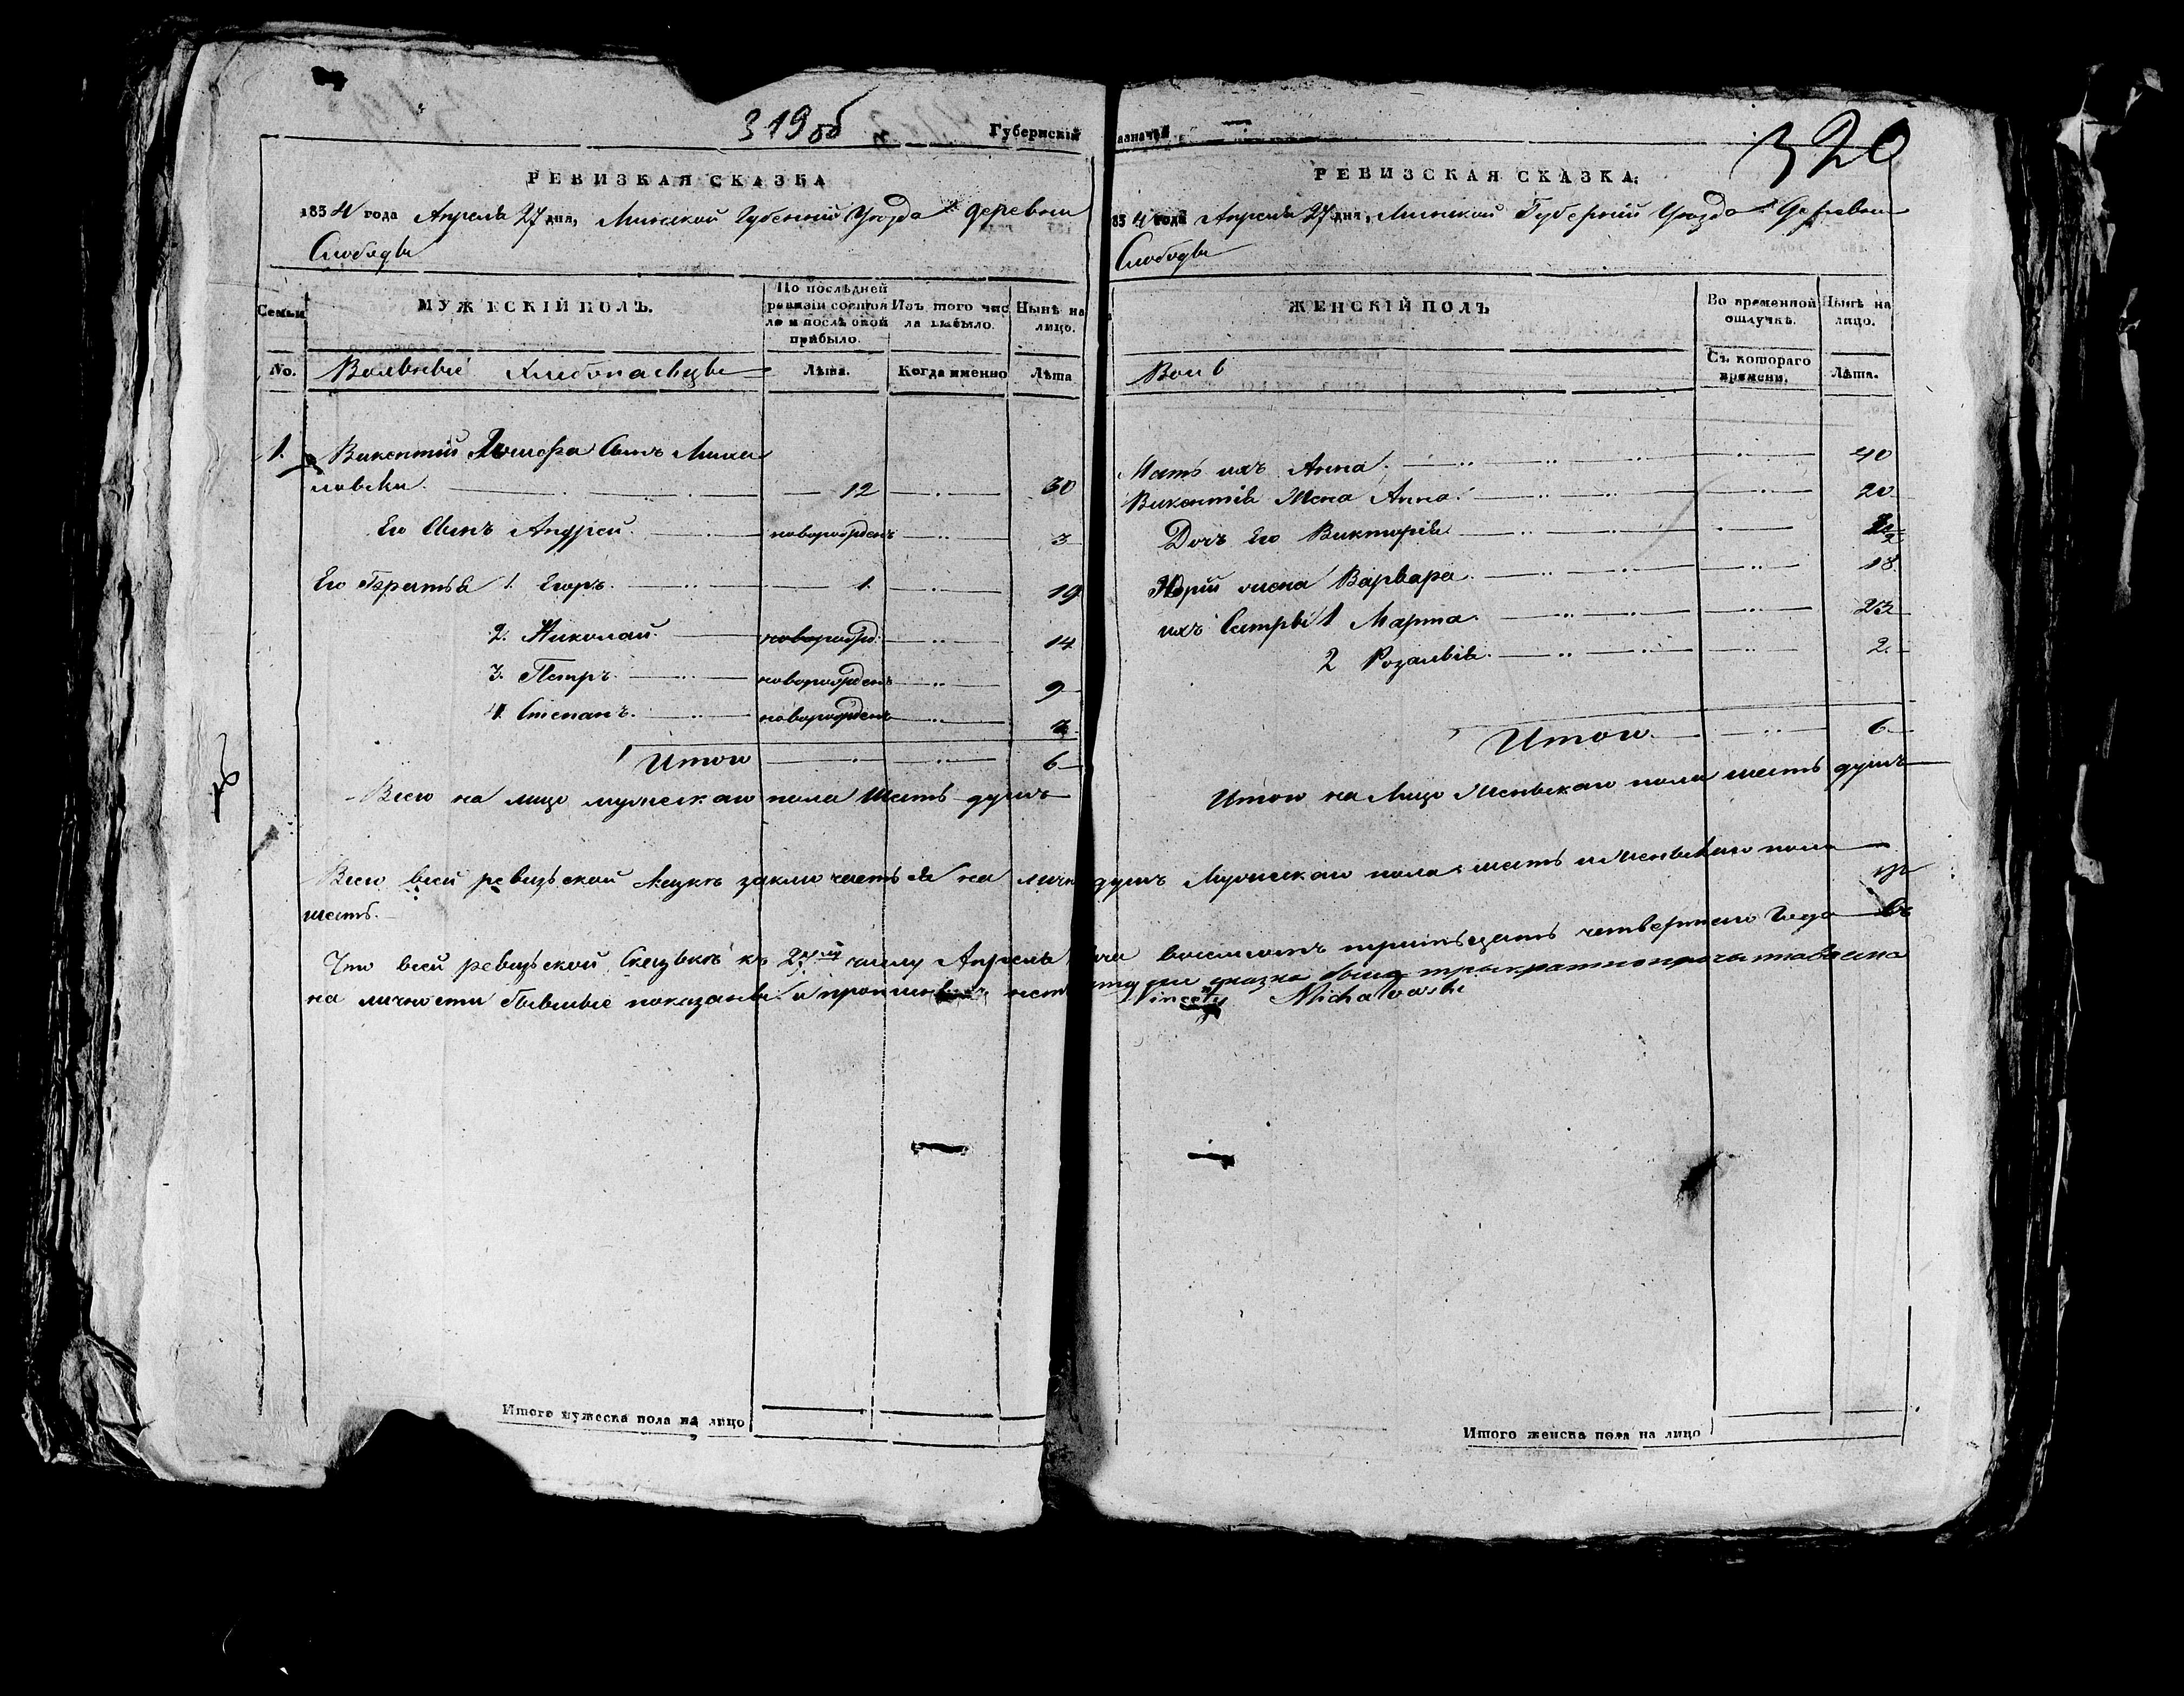 319об
Губернскій
320
РЕВИЗКАЯ СКАЗКА
1834 года Апреля 27 дня, Минской Губерніи Уезда деревни
Слободы
Семьи
МУЖЕСКІЙ ПОЛЪ.
По послѣдней ревизіи состояло и послѣ оной прибыло.
Изъ того числа выбыло.
Нынѣ на лицо.
No.
Вольные Хлебопашцы
Лѣта.
Когда именно
Лѣта
1. Викентій Сынъ Миха
ловски. 12 30
Его Сынъ Андрей. новорожденъ 3
Его Братья 1. Егоръ. 1. 19
2. Николай. новорожд. 14
3. Петръ. новорожденъ 9
4. Степанъ. новорожденъ
Итого 6
Всего на лицо мужескаго пола шесть душъ
РЕВИЗСКАЯ СКАЗКА.
1834 года Апреля 27 дня, Минской Губерніи Уезда Деревни
Слободы
ЖЕНСКІЙ ПОЛЪ
Во временной отлучкѣ.
Нынѣ на лицо.
Съ котораго времени.
Лѣта.
Мать ихъ Анна. 40
Викентія Жена Анна. 20
Дочъ Его Викторія.
жена Варвара. 18
ихъ Сестры 1 Марта. 23
2 Розалія. 2.
Итого 6
Итого на Лицо Женьскаго пола шесть душъ
Всего всей ревизьской заключаетъся на душъ Мужескаго пола шесть и Женьскаго пола
шесть.
Что всей ревизьской къ 27 числу Апреля восемсотъ тритьцать четвертаго Года
на личности бывшые показаны сказка была трыкратно
Vincenty Michalowski
Итого мужеска пола на лицо
Итого женска пола на лицо